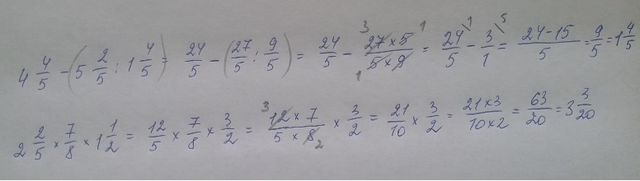 4 4/5 - (5 2/5 : 1 4/5) = 24/5 - (27/5 : 9/5) = 24/5 - 27×5/5×9 = 24/5 - 3/1 = 24-15/5 = 9/5 = 1 4/5
2 2/5 × 7/8 × 1 1/2 = 12/5 × 7/8 × 3/2 = 12×7/5×8 × 3/2 = 21/10 × 3/2 = 21×3/10×2 = 63/20 = 3 3/20